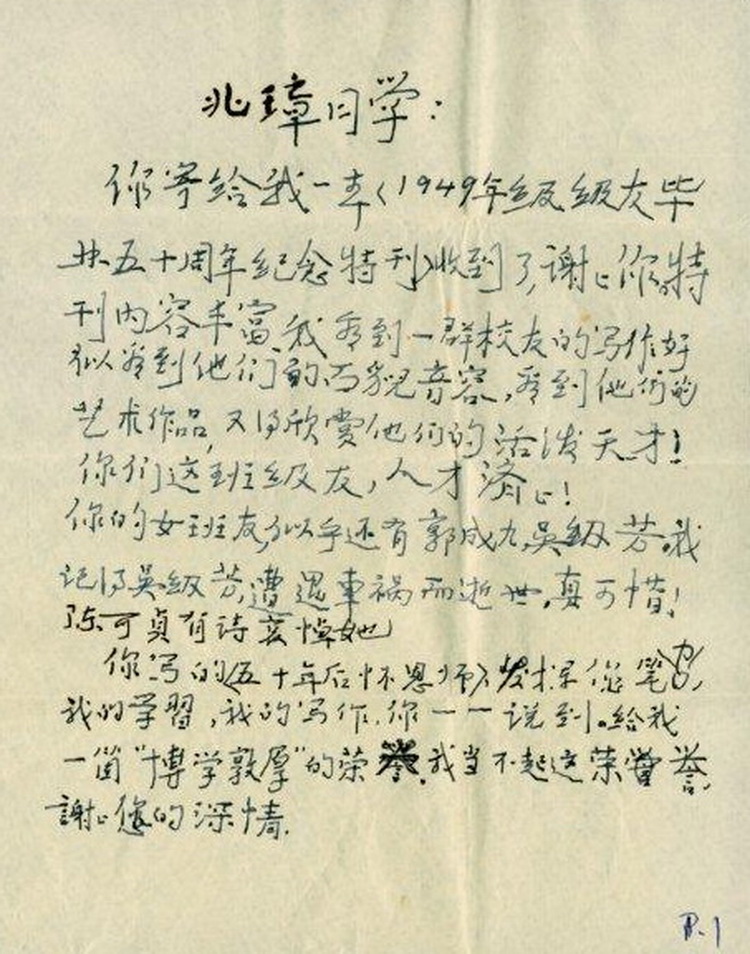 兆璋同学:
你寄给我一本〈1949年级级友毕
业五十周年纪念特刊〉收到了,謝々你。特
刊内容丰富,我看到一群校友的写作,好
似看到他们的面貌音容,看到他们的
艺术作品,又得欣赏他们的活泼天才!
你们这班级友,人才濟々!
你的女班友,似乎还有郭成九,吳級芳。我
记得吳級芳,遭遇車祸而逝世,真可惜!
陈可貞有诗哀悼她
你写的〈五十年后怀恩师〉发揮你笔力,
我的学習,我的写作,你一一说到。给我
一個“博学敦厚”的荣誉,我当不起这荣誉,
謝々您的深情.
P.1